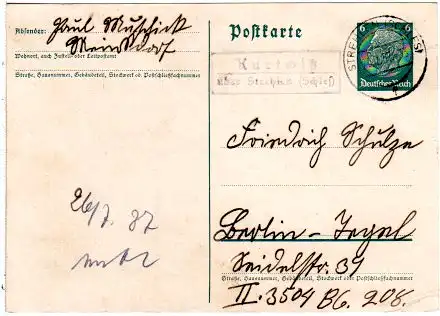 Absender: Paul Muschick
Meinsdorf
Wohnort, auch Zustell- oder Leitpostamt
Straße, Hausnummer, Gebäudeteil, Stockwerk od. Postschließfachnummer
26/7. 37
Postkarte
6 6
Deutsches Reich
STREHLEN
Kurtwitz
über Strehlen (Schles)
Friedrich Schulze
Berlin-Tegel
Seidelstr. 39
Straße, Hausnummer, Gebäudeteil, Stockwerk oder Postschließfachnummer
II. 3504 B6. 208.